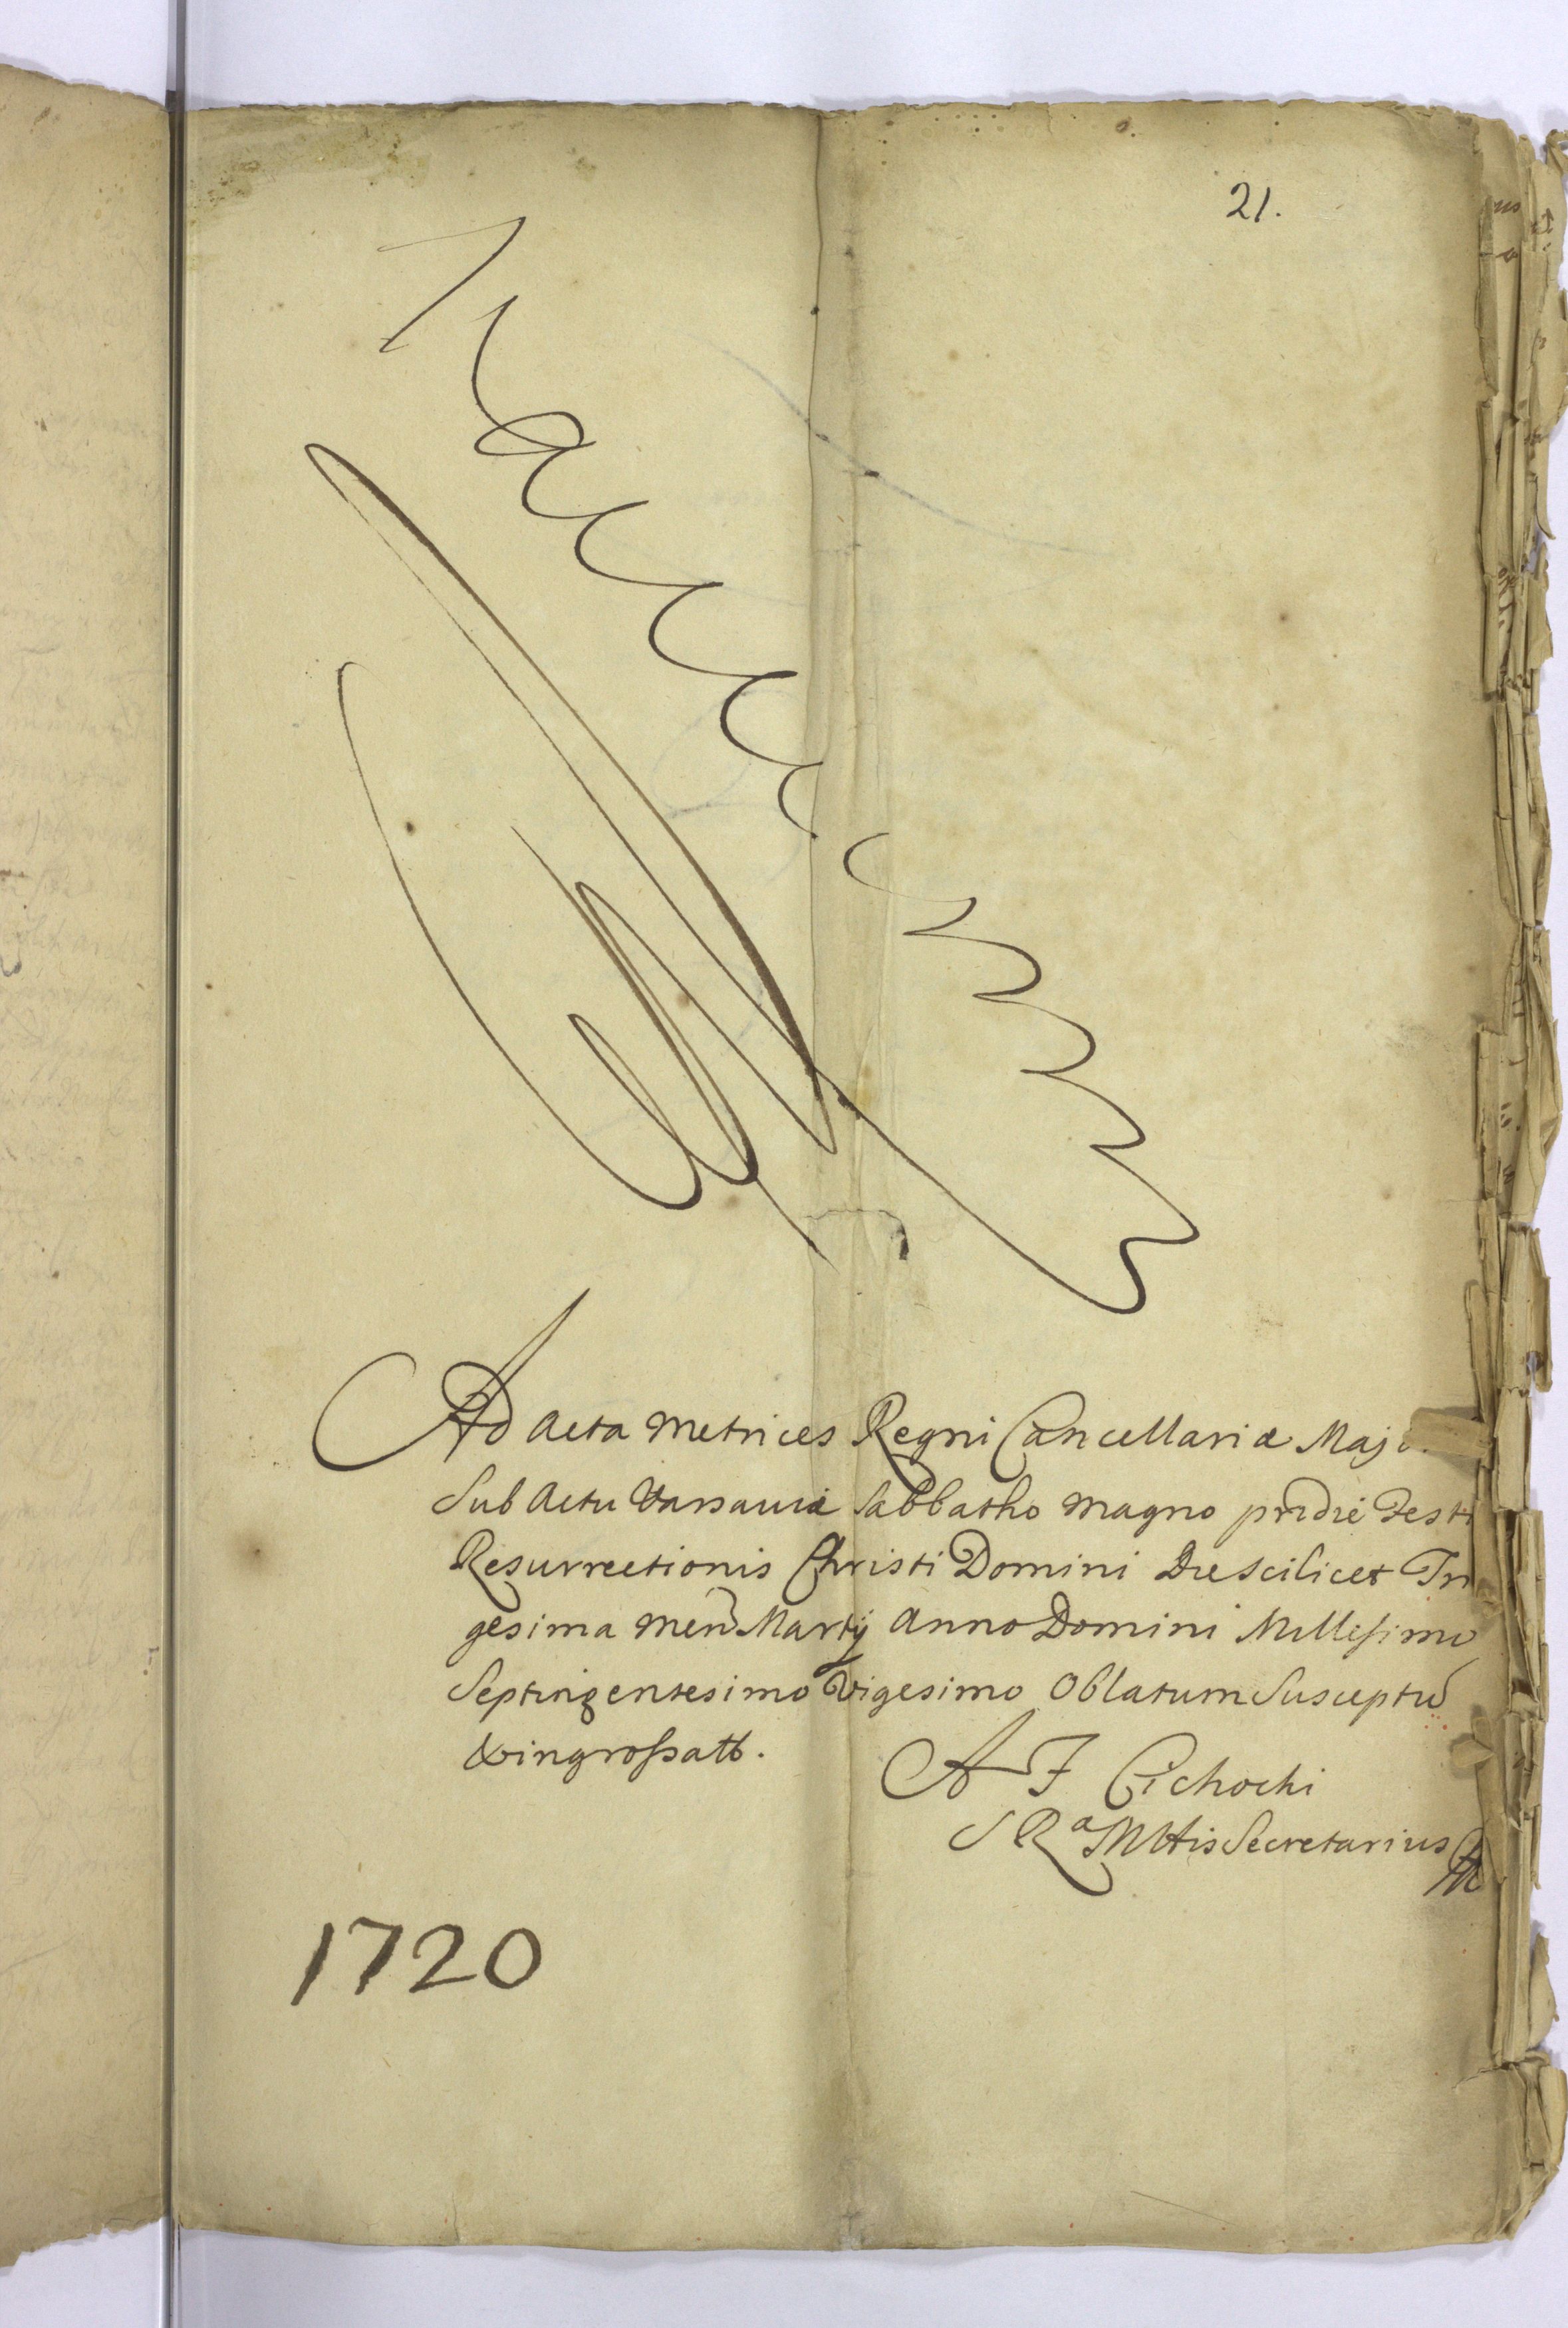 21.
Ad Acta Metrices Regni Cancellariæ Majo
Sub Actu Varsaviæ Sabbatho Magno pridie Festi
Resurrectionis Christi Domini Die Scilicet Tri
gesima Men̄ Martij Anno Domini Millesimo
Septingentesimo Vigesimo Oblatum Susceptū
& ingrossatt.
A F Cichocki
S R a Mttis Secretarius
1720